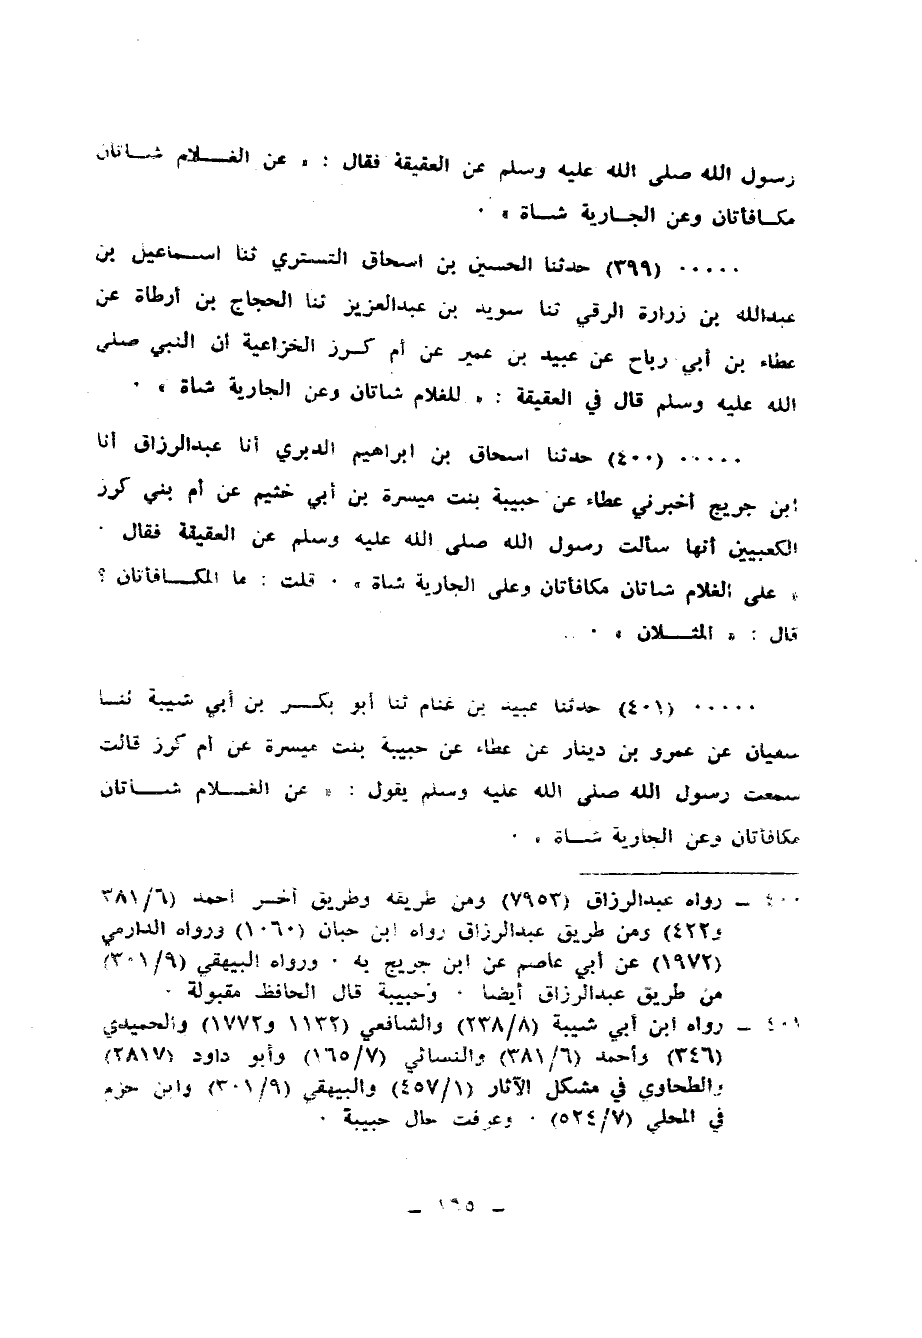 رسول الله صلى الله عليه وسلم عن العقيقة فقال : « عن الغـــلام شــاتان
مكـافأتان وعن الجــارية شــاة » ·
····· (٣٩٩) حدثنا الحسين بن اسحاق التستري ثنا اسـماعيل بن
عبدالله بن زرارة الرقي ثنا سويد بن عبدالعزيز ثنا الحجاج بن أرطاة عن
عطاء بن أبي رباح عن عبيد بن عمير عن أم كـرز الخزاعية ان النبي صلى
الله عليه وسلم قال في العقيقة : « للغلام شاتان وعن الجارية شاة » ·
····· (٤٠٠) حدثنا اسحاق بن ابراهيم الدبري أنا عبدالرزاق أنا
ابن جريج أخبرني عطاء عن حبيبة بنت ميسرة بن أبي خثيم عن أم بني كرز
الكعبيين أنها سألت رسول الله صلى الله عليه وسلم عن العقيقة فقال ·
« على الغلام شاتان مكافأتان وعلى الجارية شاة » · قلت : ما المكـــافأتان ؟
قال : « المثـــلان » ·
····· (٤٠١) حدثنا عبيد بن غنام ثنا أبو بكـــر بن أبي شيبة ثنــا
سفيان عن عمرو بن دينار عن عطاء عن حبيبة بنت ميسرة عن أم كرز قالت
سمعت رسول الله صلى الله عليه وسلم يقول : « عن الغـــلام شـــاتان
مكافأتان وعن الجارية شــاة » ·
٤٠٠ ـ رواه عبدالرزاق (٧٩٥٣) ومن طريقه وطريق آخـر أحمد (٣٨١/٦
و٤٢٢) ومن طريق عبدالرزاق رواه ابن حبان (١٠٦٠) ورواه الدارمي
(١٩٧٢) عن أبي عاصم عن ابن جريج به · ورواه البيهقي (٣٠١/٩)
من طريق عبدالرزاق أيضا · وحبيبة قال الحافظ مقبولة ·
٤٠١ ـ رواه ابن أبي شيبة (٢٣٨/٨) والشافعي (١١٣٢ و١٧٧٢) والحميدي
(٣٤٦) وأحمد (٣٨١/٦) والنسائي (١٦٥/٧) وأبو داود (٢٨١٧)
والطحاوي في مشكل الآثار (٤٥٧/١) والبيهقي (٣٠١/٩) وابن حزم
في المحلي (٥٢٤/٧) · وعرفت حال حبيبة ·
ـ ١٦٥ ـ